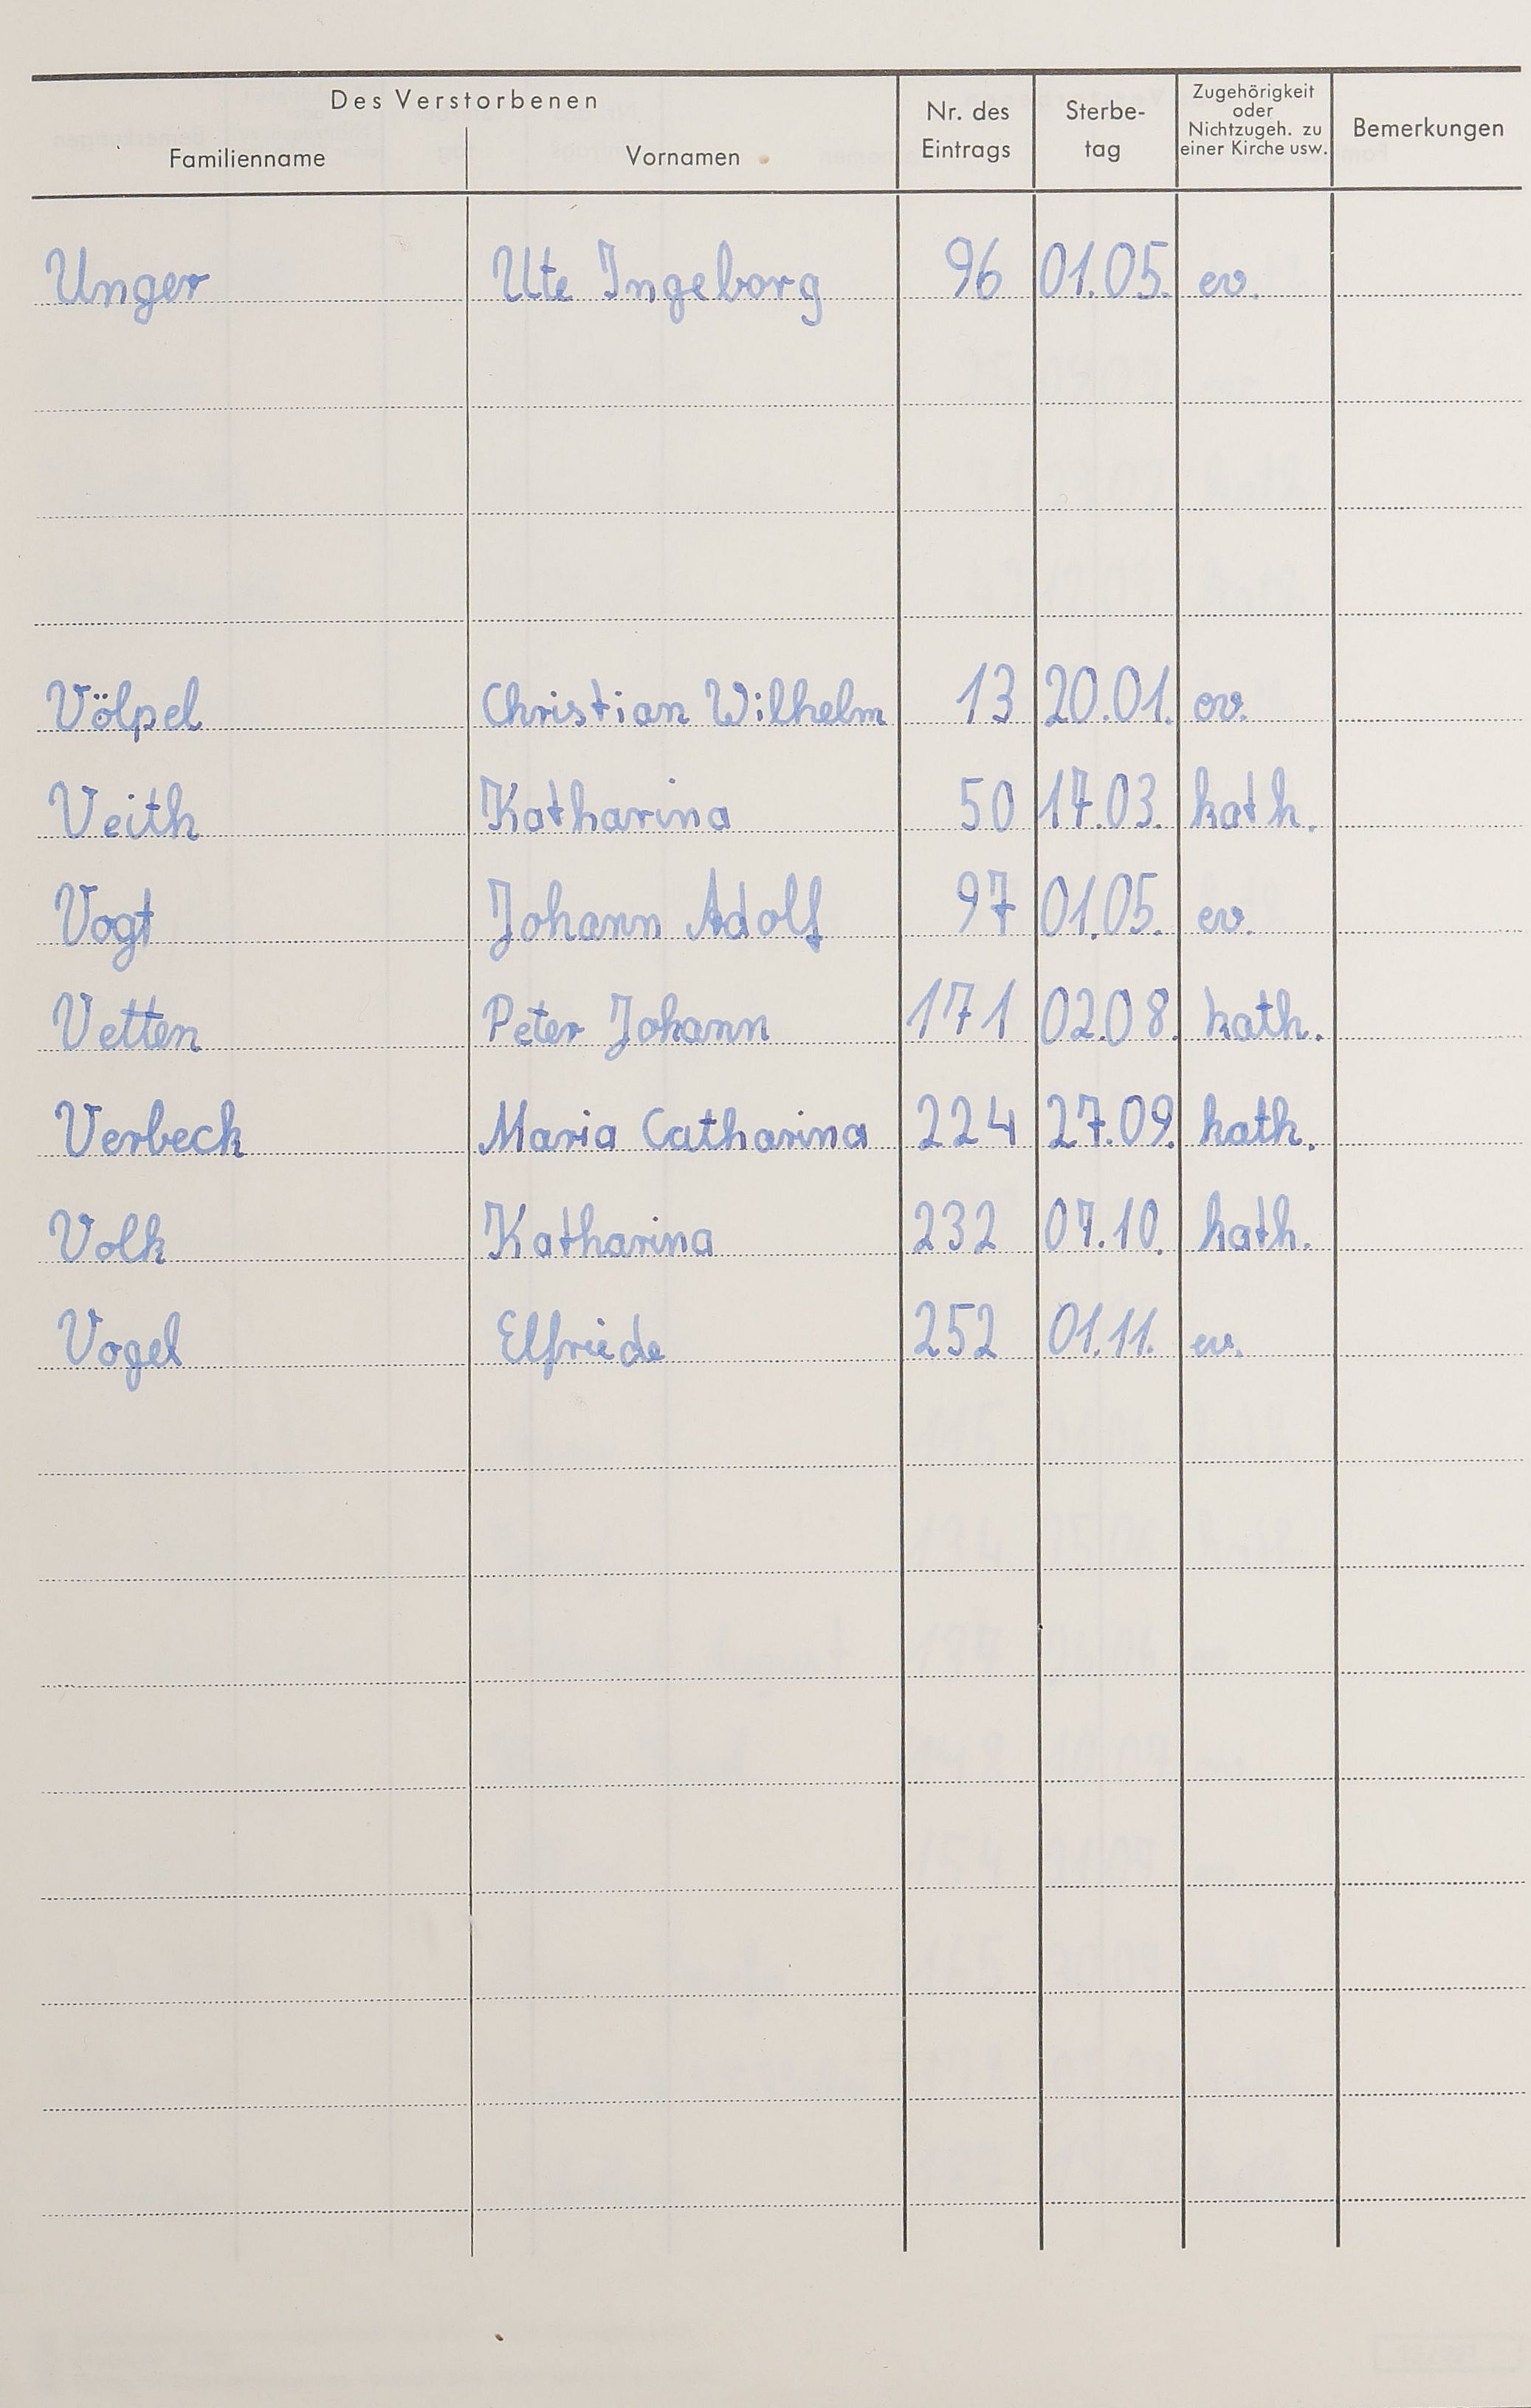 Des Verstorbenen
Familienname Vornamen Nr. des Eintrags Sterbe- tag Zugehörigkeit oder Nichtzugeh. zu einer Kirche usw. Bemerkungen
Unger Ute Ingeborg 96 01.05. ev.
Völpel Christian Wilhelm 13 20.01. ev.
Veith Katharina 50 17.03. kath.
Vogt Johann Adolf 97 01.05. ev.
Vetten Peter Johann 171 02.08. kath.
Verbeck Maria Catharina 224 27.09. kath.
Volk Katharina 232 07.10. kath.
Vogel Elfriede 252 01.11. ev.